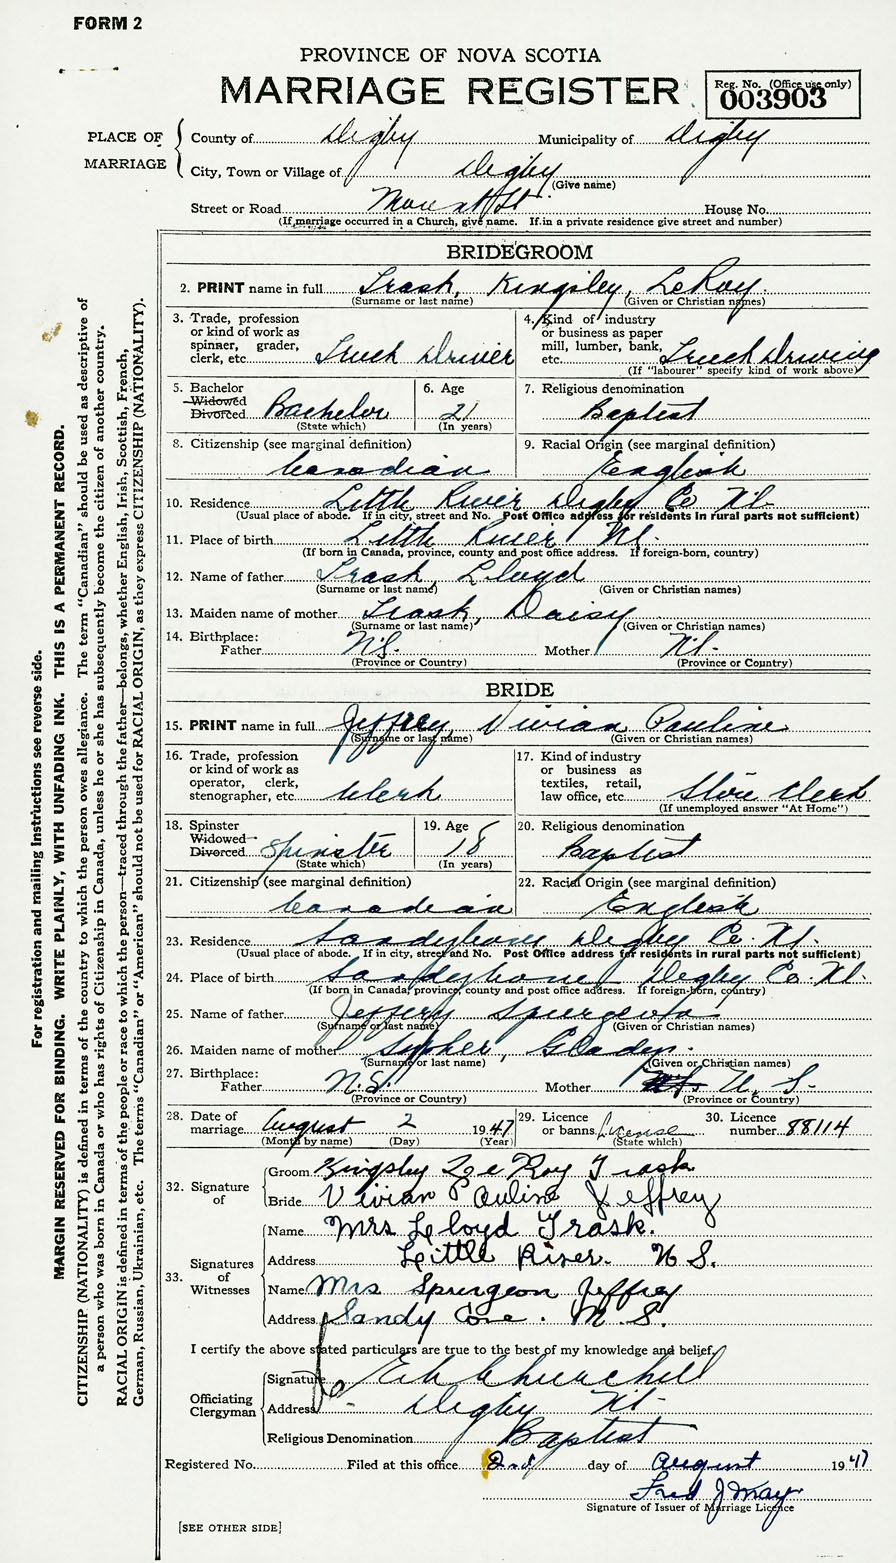 FORM 2
PROVINCE OF NOVA SCOTIA
MARRIAGE REGISTER
Reg. No. (Office use only)
003903
PLACE OF MARRIAGE
County of Digby Municipality of Digby
City, Town or Village of Digby
(Give name)
Street or Road Mount St. House No.
(If marriage occurred in a Church, give name. If in a private residence give street and number)
BRIDEGROOM
2. PRINT name in full Trask, Kingsley LeRoy
(Surname or last name) (Given or Christian names)
3. Trade, profession or kind of work as spinner, grader, clerk, etc. Truck Driver
4. Kind of industry or business as paper mill, lumber, bank, etc. Truck Driving
(If "labourer" specify kind of work above)
5. Bachelor Widowed Divorced Bachelor
(State which)
6. Age 21
(In years)
7. Religious denomination
Baptist
8. Citizenship (see marginal definition)
Canadian
9. Racial Origin (see marginal definition)
English
10. Residence Little River Digby Co N.S.
(Usual place of abode. If in city, street and No. Post Office address for residents in rural parts not sufficient)
11. Place of birth Little River N.S.
(If born in Canada, province, county and post office address. If foreign-born, country)
12. Name of father Trask, Lloyd
(Surname or last name) (Given or Christian names)
13. Maiden name of mother Trask, Daisy
(Surname or last name) (Given or Christian names)
14. Birthplace:
Father N.S. Mother N.S.
(Province or Country) (Province or Country)
BRIDE
15. PRINT name in full Jeffrey, Vivian Pauline
(Surname or last name) (Given or Christian names)
16. Trade, profession or kind of work as operator, clerk, stenographer, etc. Clerk
17. Kind of industry or business as textiles, retail, law office, etc. Store Clerk
(If unemployed answer "At Home")
18. Spinster Widowed Divorced Spinster
(State which)
19. Age 18
(In years)
20. Religious denomination
Baptist
21. Citizenship (see marginal definition)
Canadian
22. Racial Origin (see marginal definition)
English
23. Residence Sandy Cove Digby Co. N.S.
(Usual place of abode. If in city, street and No. Post Office address for residents in rural parts not sufficient)
24. Place of birth Sandy Cove Digby Co. N.S.
(If born in Canada, province, county and post office address. If foreign-born, country)
25. Name of father Jeffery Spurgeon
(Surname or last name) (Given or Christian names)
26. Maiden name of mother Sypher, Gladys
(Surname or last name) (Given or Christian names)
27. Birthplace:
Father N.S. Mother U.S.
(Province or Country) (Province or Country)
28. Date of marriage August 2 1947
(Month by name) (Day) (Year)
29. Licence or banns License
(State which)
30. Licence number 88114
32. Signature of
Groom Kingsley Le Roy Trask
Bride Vivian Pauline Jeffrey
33. Signatures of Witnesses
Name Mrs Lloyd Trask.
Address Little River. N S.
Name Mrs Spurgeon Jeffrey
Address Sandy Cove. N. S.
I certify the above stated particulars are true to the best of my knowledge and belief.
Officiating Clergyman
Signature Churchill
Address Digby N.S.
Religious Denomination Baptist
Registered No. Filed at this office 2nd day of August 1947
Fred J May
Signature of Issuer of Marriage Licence
[SEE OTHER SIDE]
For registration and mailing instructions see reverse side.
MARGIN RESERVED FOR BINDING. WRITE PLAINLY, WITH UNFADING INK. THIS IS A PERMANENT RECORD.
CITIZENSHIP (NATIONALITY) is defined in terms of the country to which the person owes allegiance. The term "Canadian" should be used as descriptive of
a person who was born in Canada or who has rights of Citizenship in Canada, unless he or she has subsequently become the citizen of another country.
RACIAL ORIGIN is defined in terms of the people or race to which the person—traced through the father—belongs, whether English, Irish, Scottish, French,
German, Russian, Ukrainian, etc. The terms "Canadian" or "American" should not be used for RACIAL ORIGIN, as they express CITIZENSHIP (NATIONALITY).